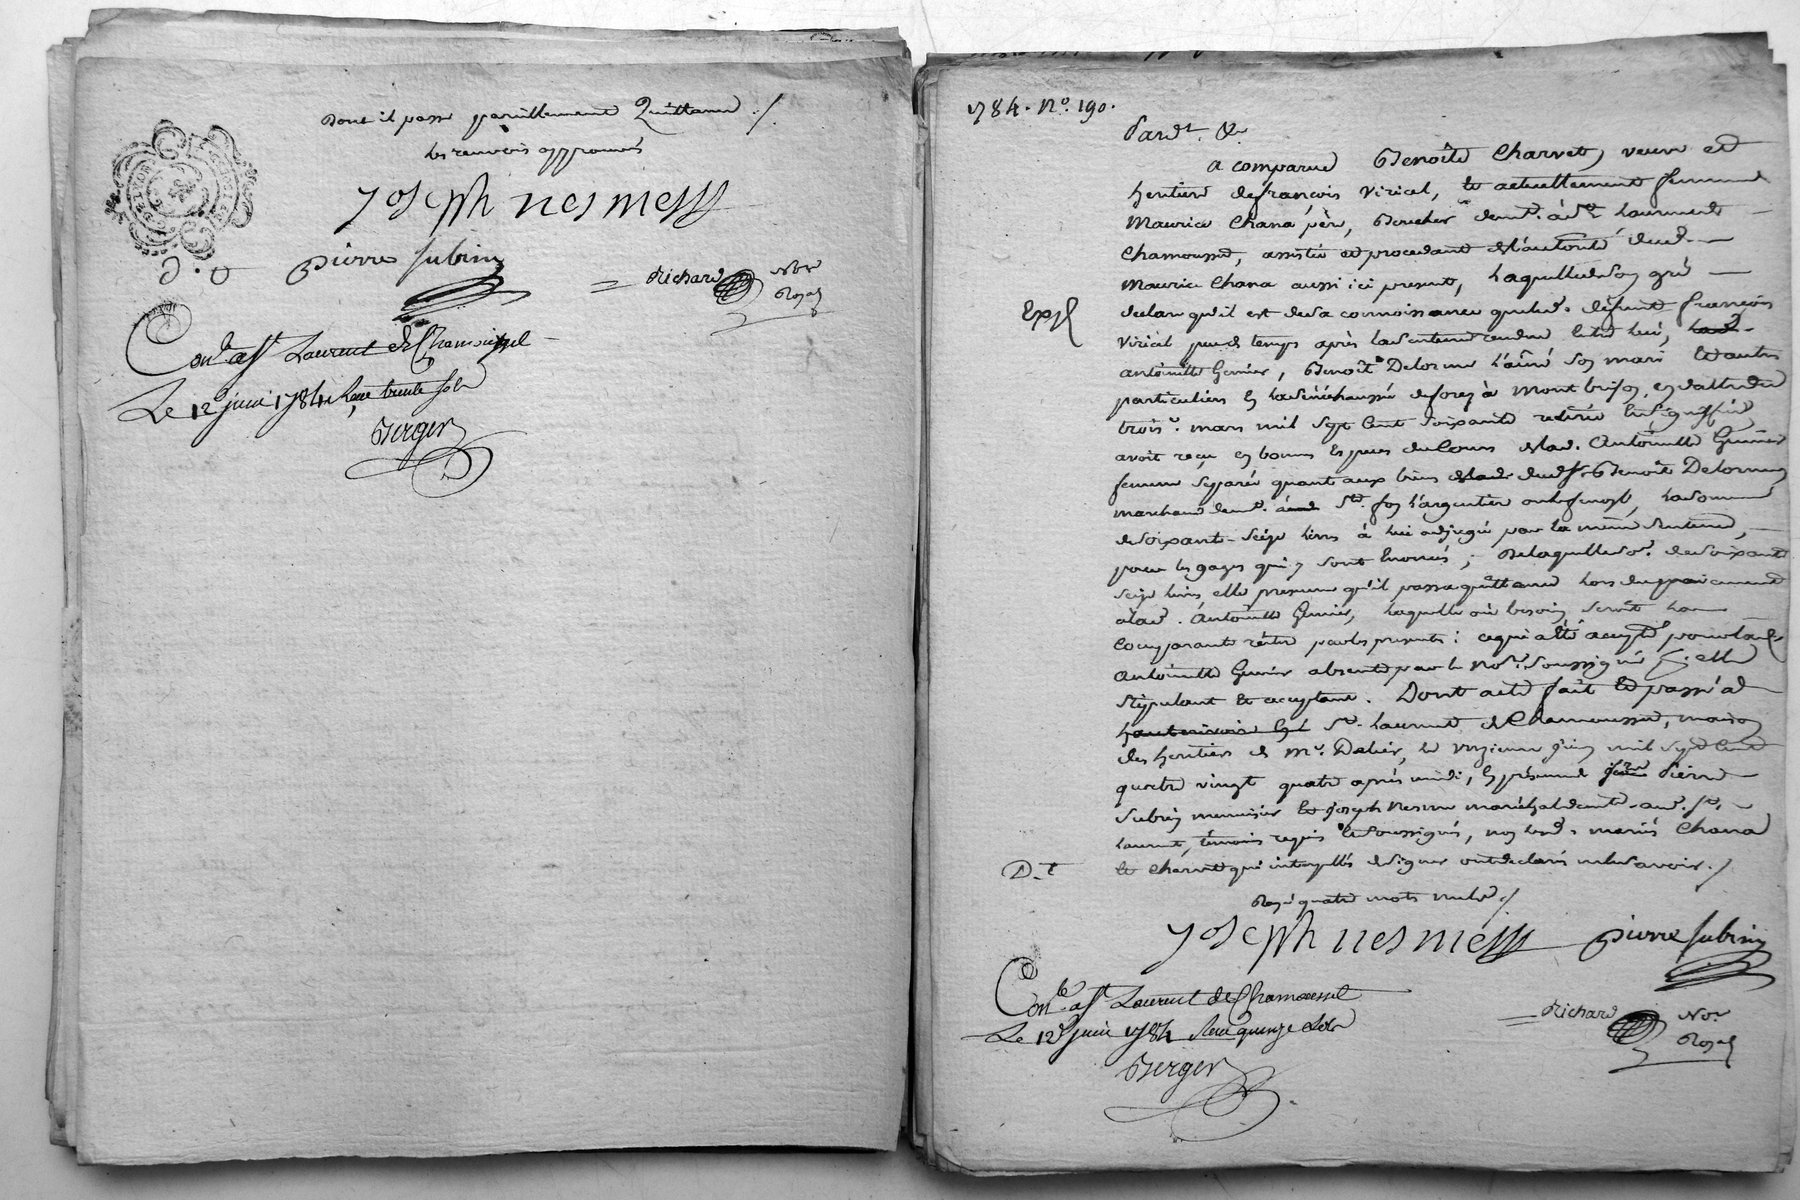 Dont il passe pareillement Quittance ./
les renvois approuvés
Joseph nesmess
Pierre Subrin
D. t
Richard No.re Royal
Con.lé a St Laurent de Chamousset
Le 12 juin 1784 Reçu trente sols
Berger
1784. N.o 190.
Pard.t &c
a comparue Benoîte Charvet, veuve et
heritiere de françois Viricel, et actuellement femme
Maurice Chana père, Boucher dem.t à St. Laurent de
Chamousset, assistée et procedant de l'autorité dud.
Maurice Chana aussi ici present, laquelle de son gré
Exp.
declare qu'il est de sa connoissance que led. défunt françois
Viricel peu de temps après la sentence rendue entre lui, lad.
antoinette Grenier, Benoît Delorme l'aîné son mari et autres
particuliers en la sénéchaussée de forez à Montbrison, en datte du
trois mars mil sept cent soixante
avoit reçu en bonnes especes de cours de lad. Antoinette Grenier
femme separée quant aux biens dud. Sr. Benoît Delorme
marchand dem.t à Ste. foy l'argentiere, la somme
de soixante-seize livres à lui adjugée par la même Sentence,
pour les gages qui y sont énoncés ; De laquelle so.e de soixante
seize livres elle presume qu'il passa quittance lors du paiement
à lad. Antoinette Grenier, laquelle où besoin seroit la
comparante réitere par les presentes : ce qui a été accepté pour lad.
Antoinette Grenier absente par le No.re soussigné p. elle
stipulant et acceptant. Dont acte fait et passé à
St. Laurent de Chamousset, maison
des heritiers de Mr. Dalier, le onzieme juin mil sept cent
quatre vingt quatre après midi, en présence de Pierre
Subrin menuisier et joseph Nesme maréchal dem.t aud. St.
Laurent, témoins requis et soussignés, non lesd. mariés Chana
D.t
et Charvet qui interpellés de signer ont declaré ne le savoir ./
Rayé quatre mots nuls ./
Joseph nesmess Pierre Subrin
Con.lé a St Laurent de Chamousset
Le 12 juin 1784 Reçu quinze sols
Richard No.re Royal
Berger